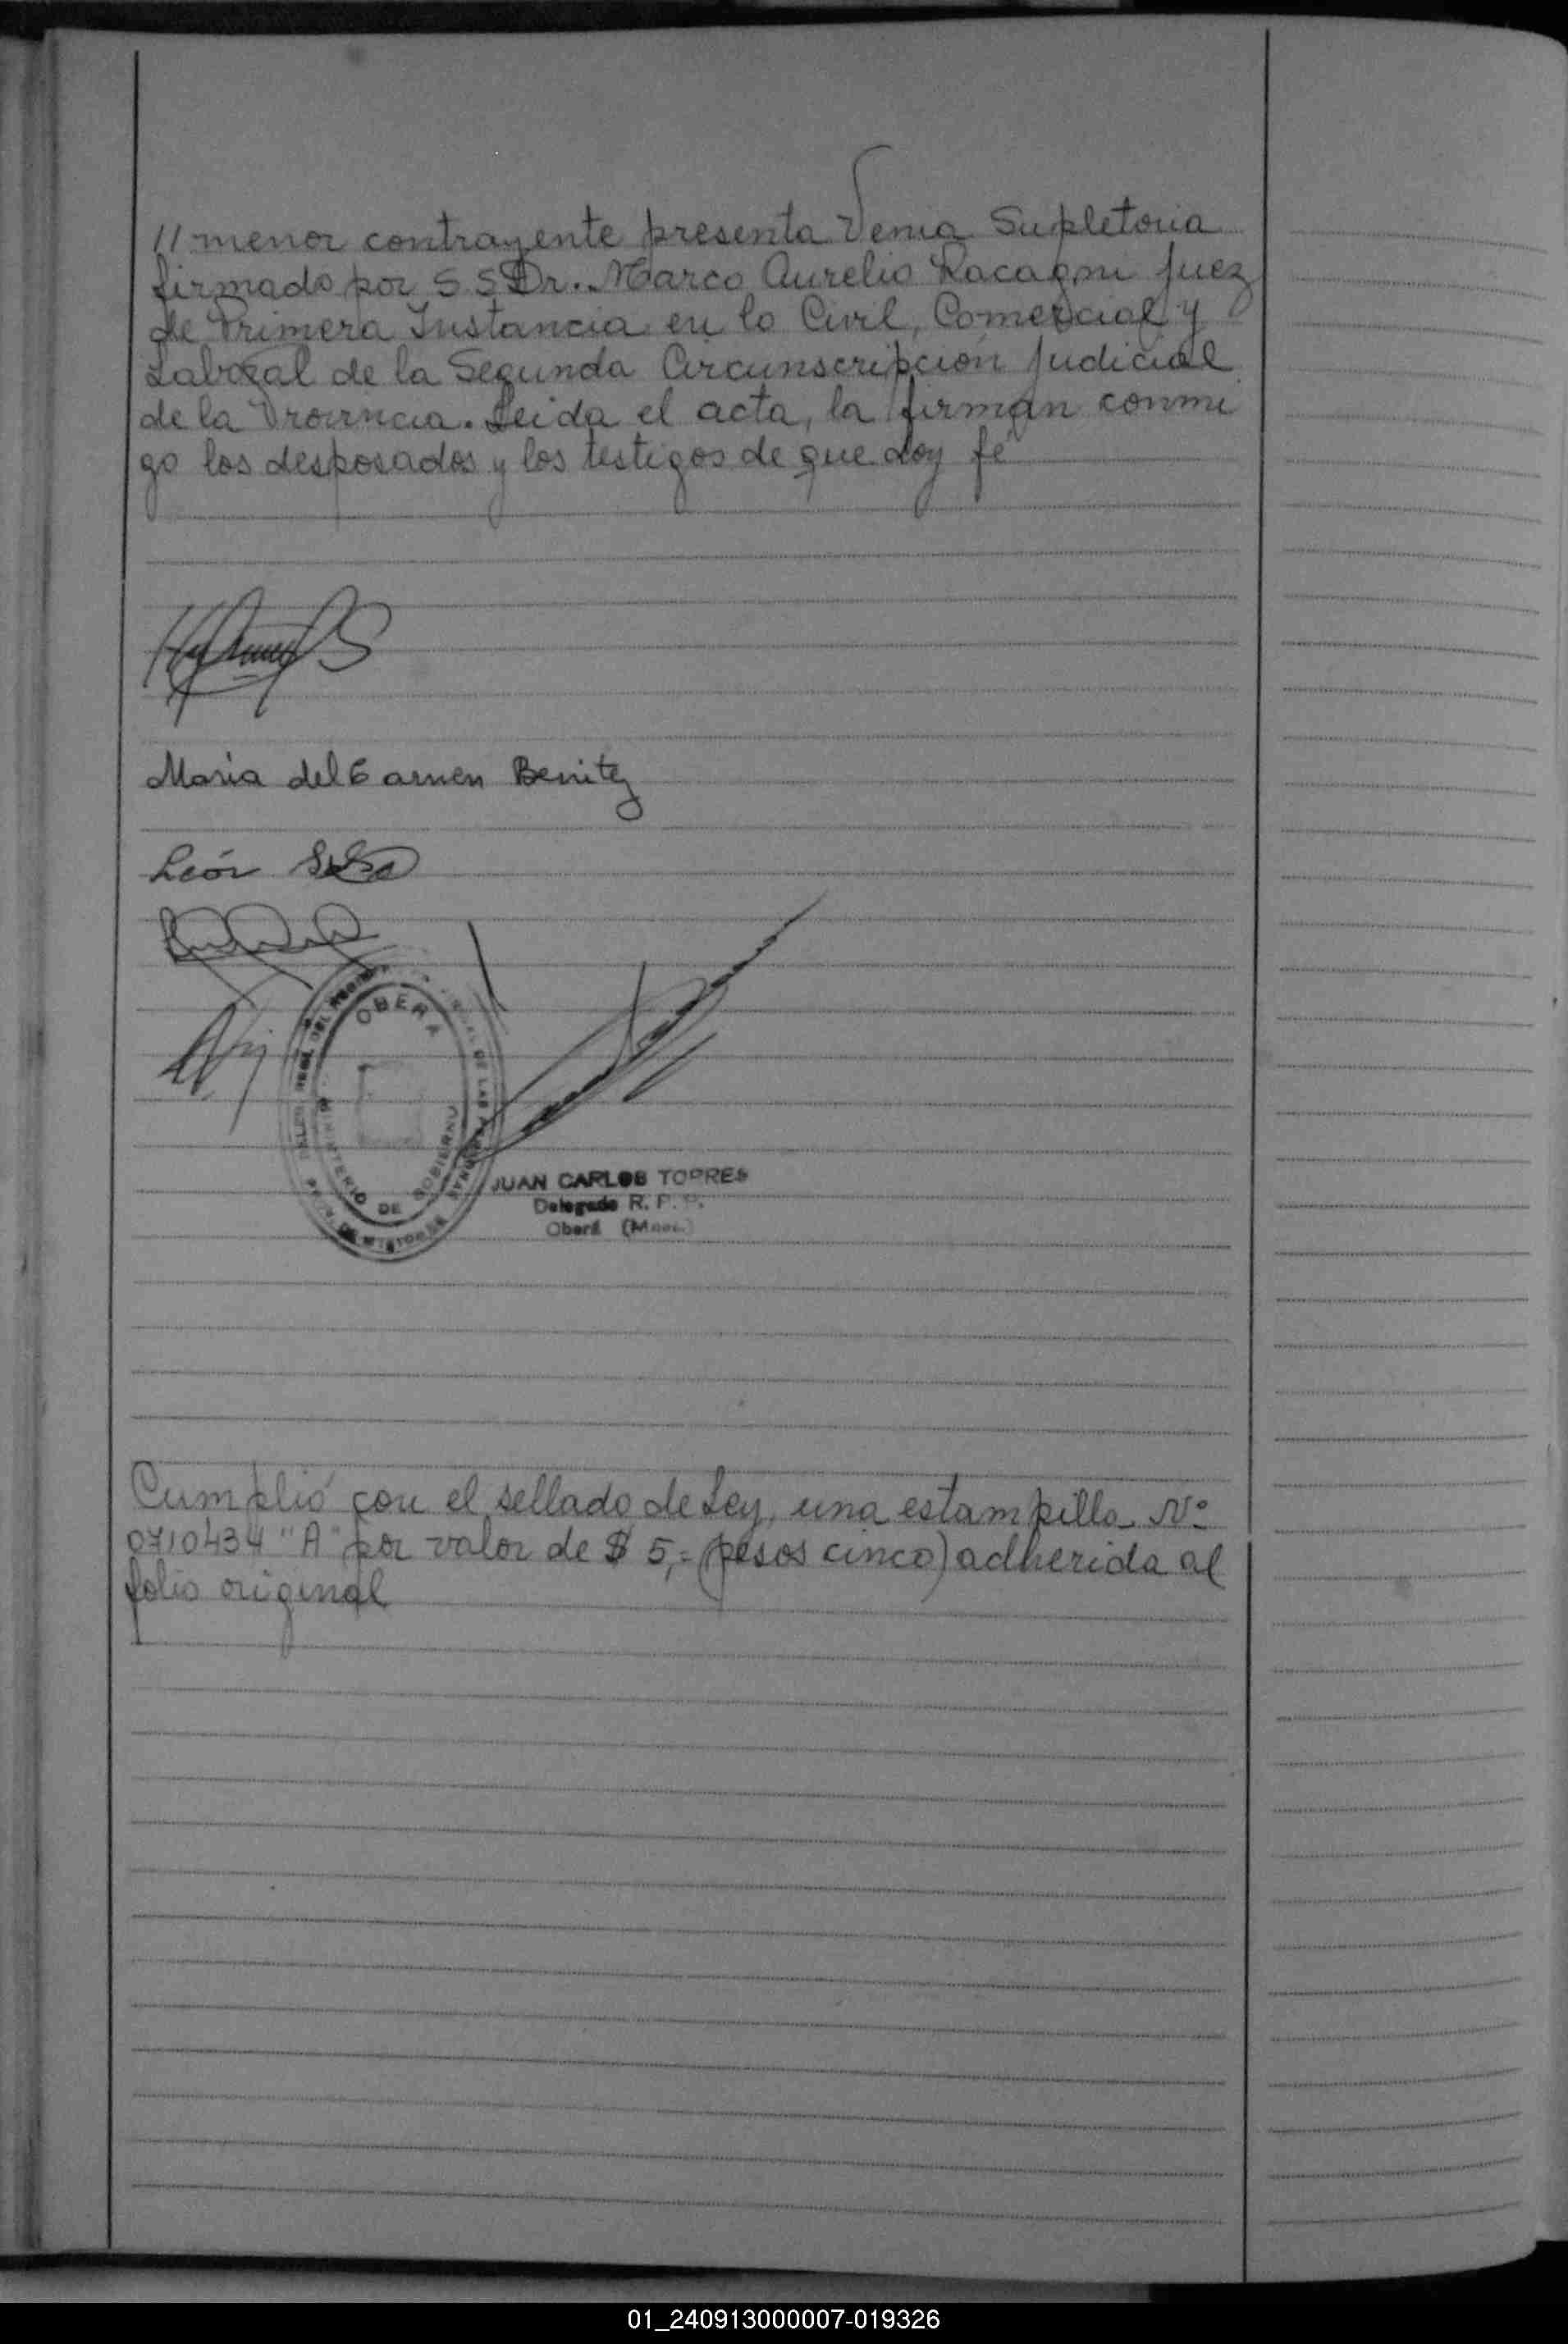 // menor contrayente presenta Venia Supletoria
firmado por S S Dr. Marco Aurelio Racagni Juez
de Primera Instancia en lo Civil, Comercial y
Laboral de la Segunda Circunscripción Judicial
de la Provincia. Leida el acta, la firman conmi
go los desposados y los testigos de que doy fé
Maria del Carmen Benitez
León
OBERA
MINISTERIO DE GOBIERNO
JUAN CARLOS TORRES
Delegado R. P. P.
Oberá (Mnes.)
Cumplió con el sellado de Ley, una estampilla Nº
0710434 "A" por valor de $ 5,= (pesos cinco) adherida al
folio original
01_240913000007-019326